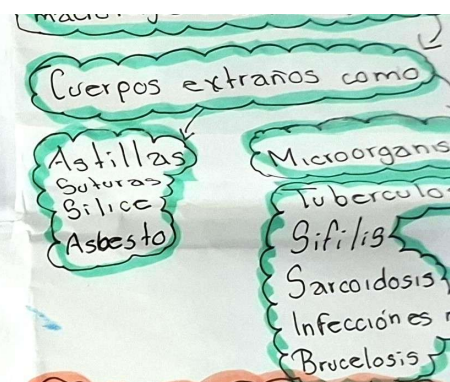 Cuerpos extraños como
Astillas
Suturas
Silice
Asbesto
Microorganis
Tuberculo
Sifilis
Sarcoidosis
Infecciónes
Brucelosis